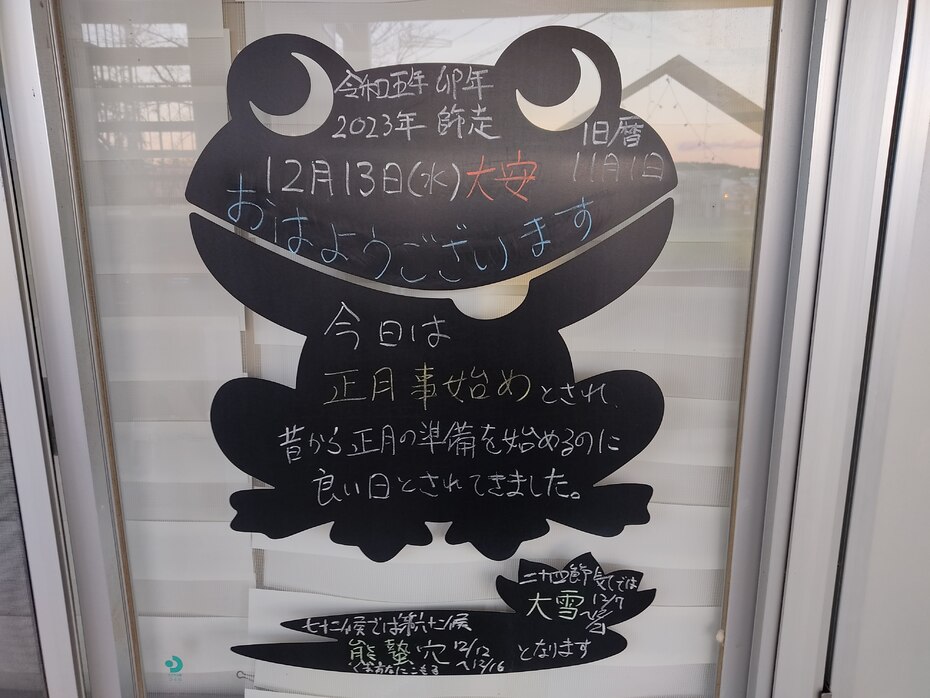 令和五年 卯年
2023年 師走
旧暦
11月1日
12月13日(水)大安
おはようございます
今日は
正月事始めとされ、
昔から正月の準備を始めるのに
良い日とされてきました。
二十四節気では
大雪 12/7
七十二候では第六十二候
熊蟄穴 12/12～12/16
くまあなにこもる
となります